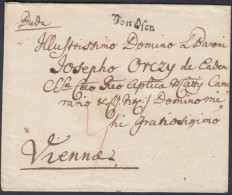 Buda
Von Ofen
Illustrissimo Domino L. Baroni
Josepho Orczy de Eadem
Suae Apticae Mattis Cam
rario Domino mi
hi gratiosissimo
Viennae